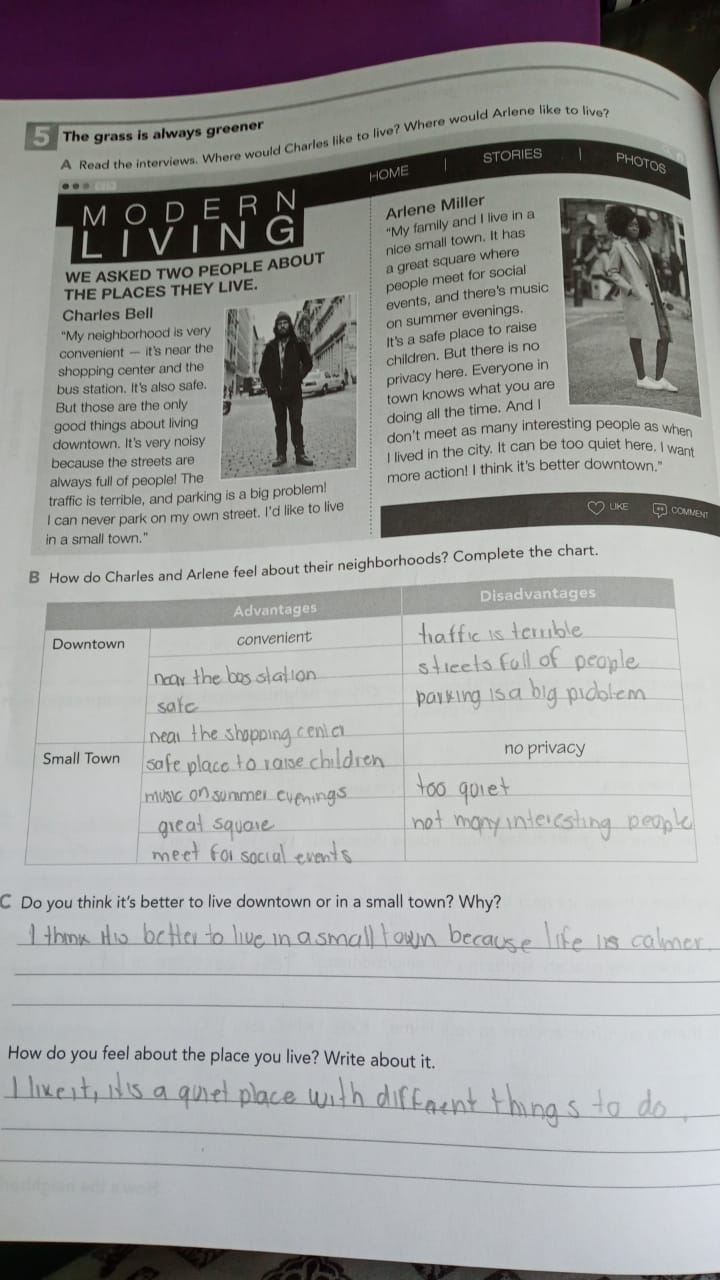 5 The grass is always greener
A Read the interviews. Where would Charles like to live? Where would Arlene like to live?
HOME | STORIES | PHOTOS
MODERN
LIVING
WE ASKED TWO PEOPLE ABOUT
THE PLACES THEY LIVE.
Charles Bell
"My neighborhood is very
convenient — it's near the
shopping center and the
bus station. It's also safe.
But those are the only
good things about living
downtown. It's very noisy
because the streets are
always full of people! The
traffic is terrible, and parking is a big problem!
I can never park on my own street. I'd like to live
in a small town."
Arlene Miller
"My family and I live in a
nice small town. It has
a great square where
people meet for social
events, and there's music
on summer evenings.
It's a safe place to raise
children. But there is no
privacy here. Everyone in
town knows what you are
doing all the time. And I
don't meet as many interesting people as when
I lived in the city. It can be too quiet here. I want
more action! I think it's better downtown."
LIKE COMMENT
B How do Charles and Arlene feel about their neighborhoods? Complete the chart.
Advantages Disadvantages
Downtown convenient traffic is terrible
near the bus station streets full of people
safe parking is a big problem
near the shopping center
Small Town safe place to raise children no privacy
music on summer evenings too quiet
great square not many interesting people
meet for social events
C Do you think it's better to live downtown or in a small town? Why?
I think it is better to live in a small town because life is calmer.
How do you feel about the place you live? Write about it.
I like it, it is a quiet place with different things to do.